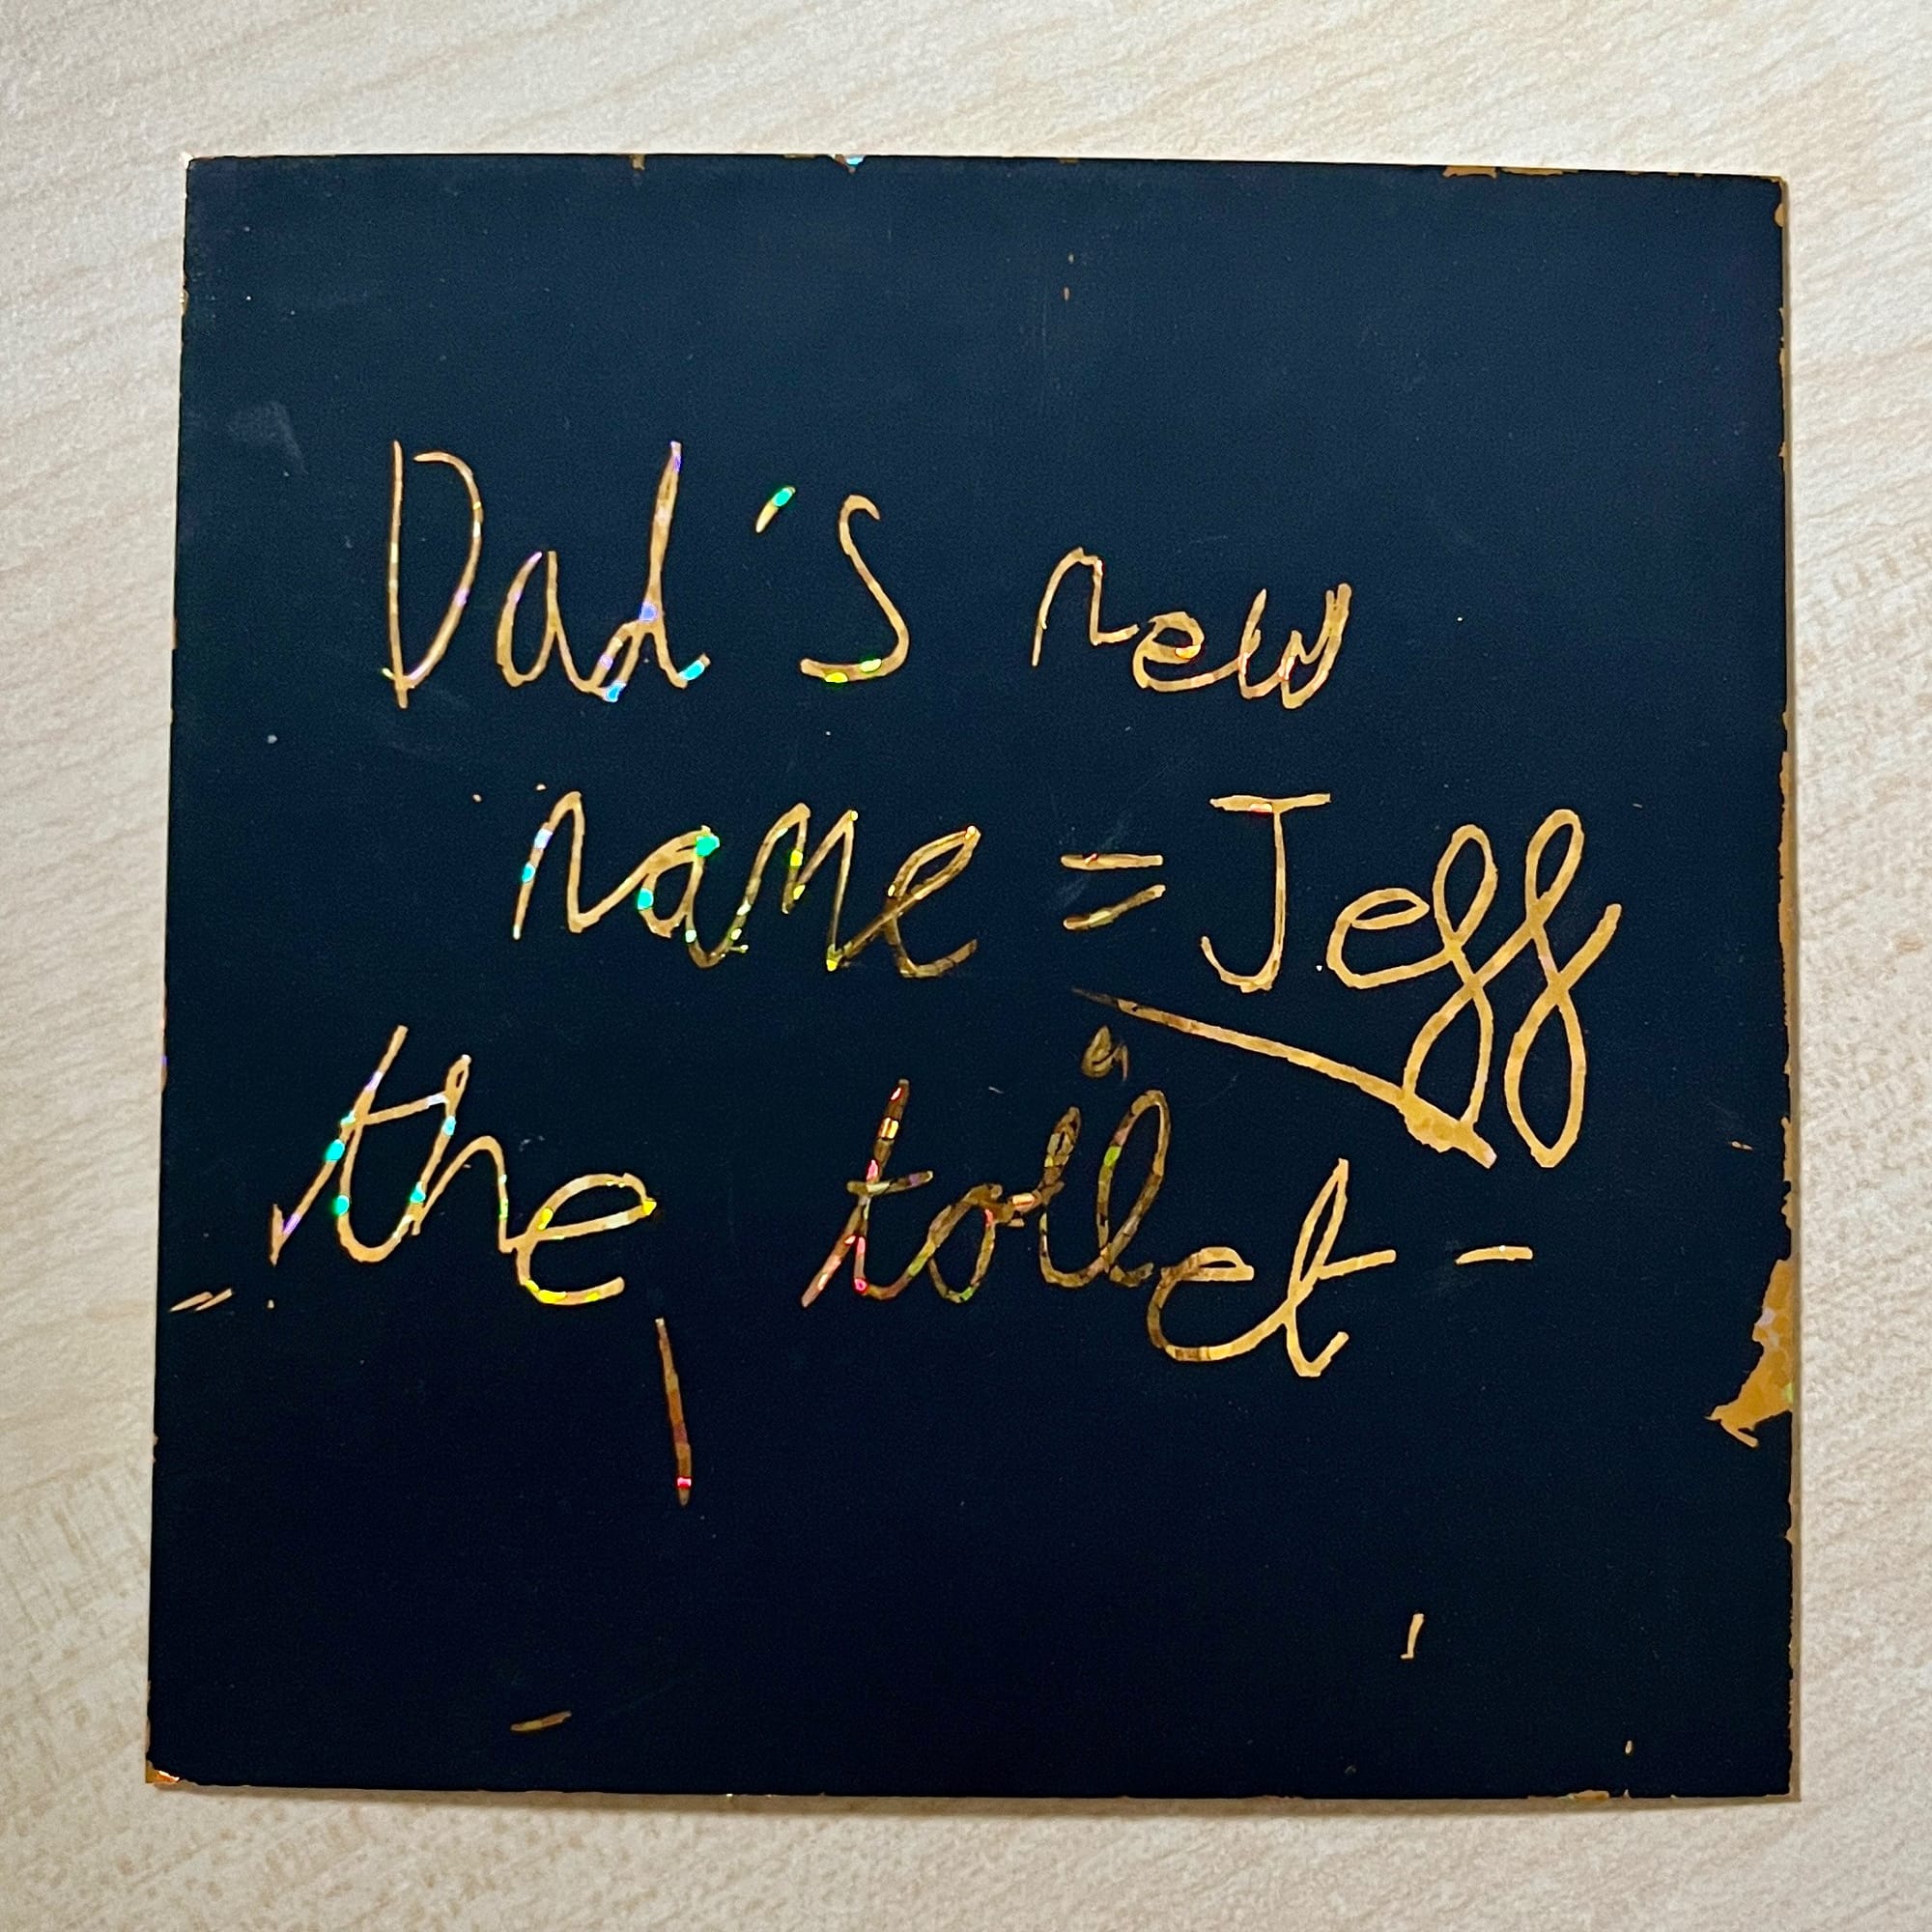 Dad's new
name = Jeff
the toilet -